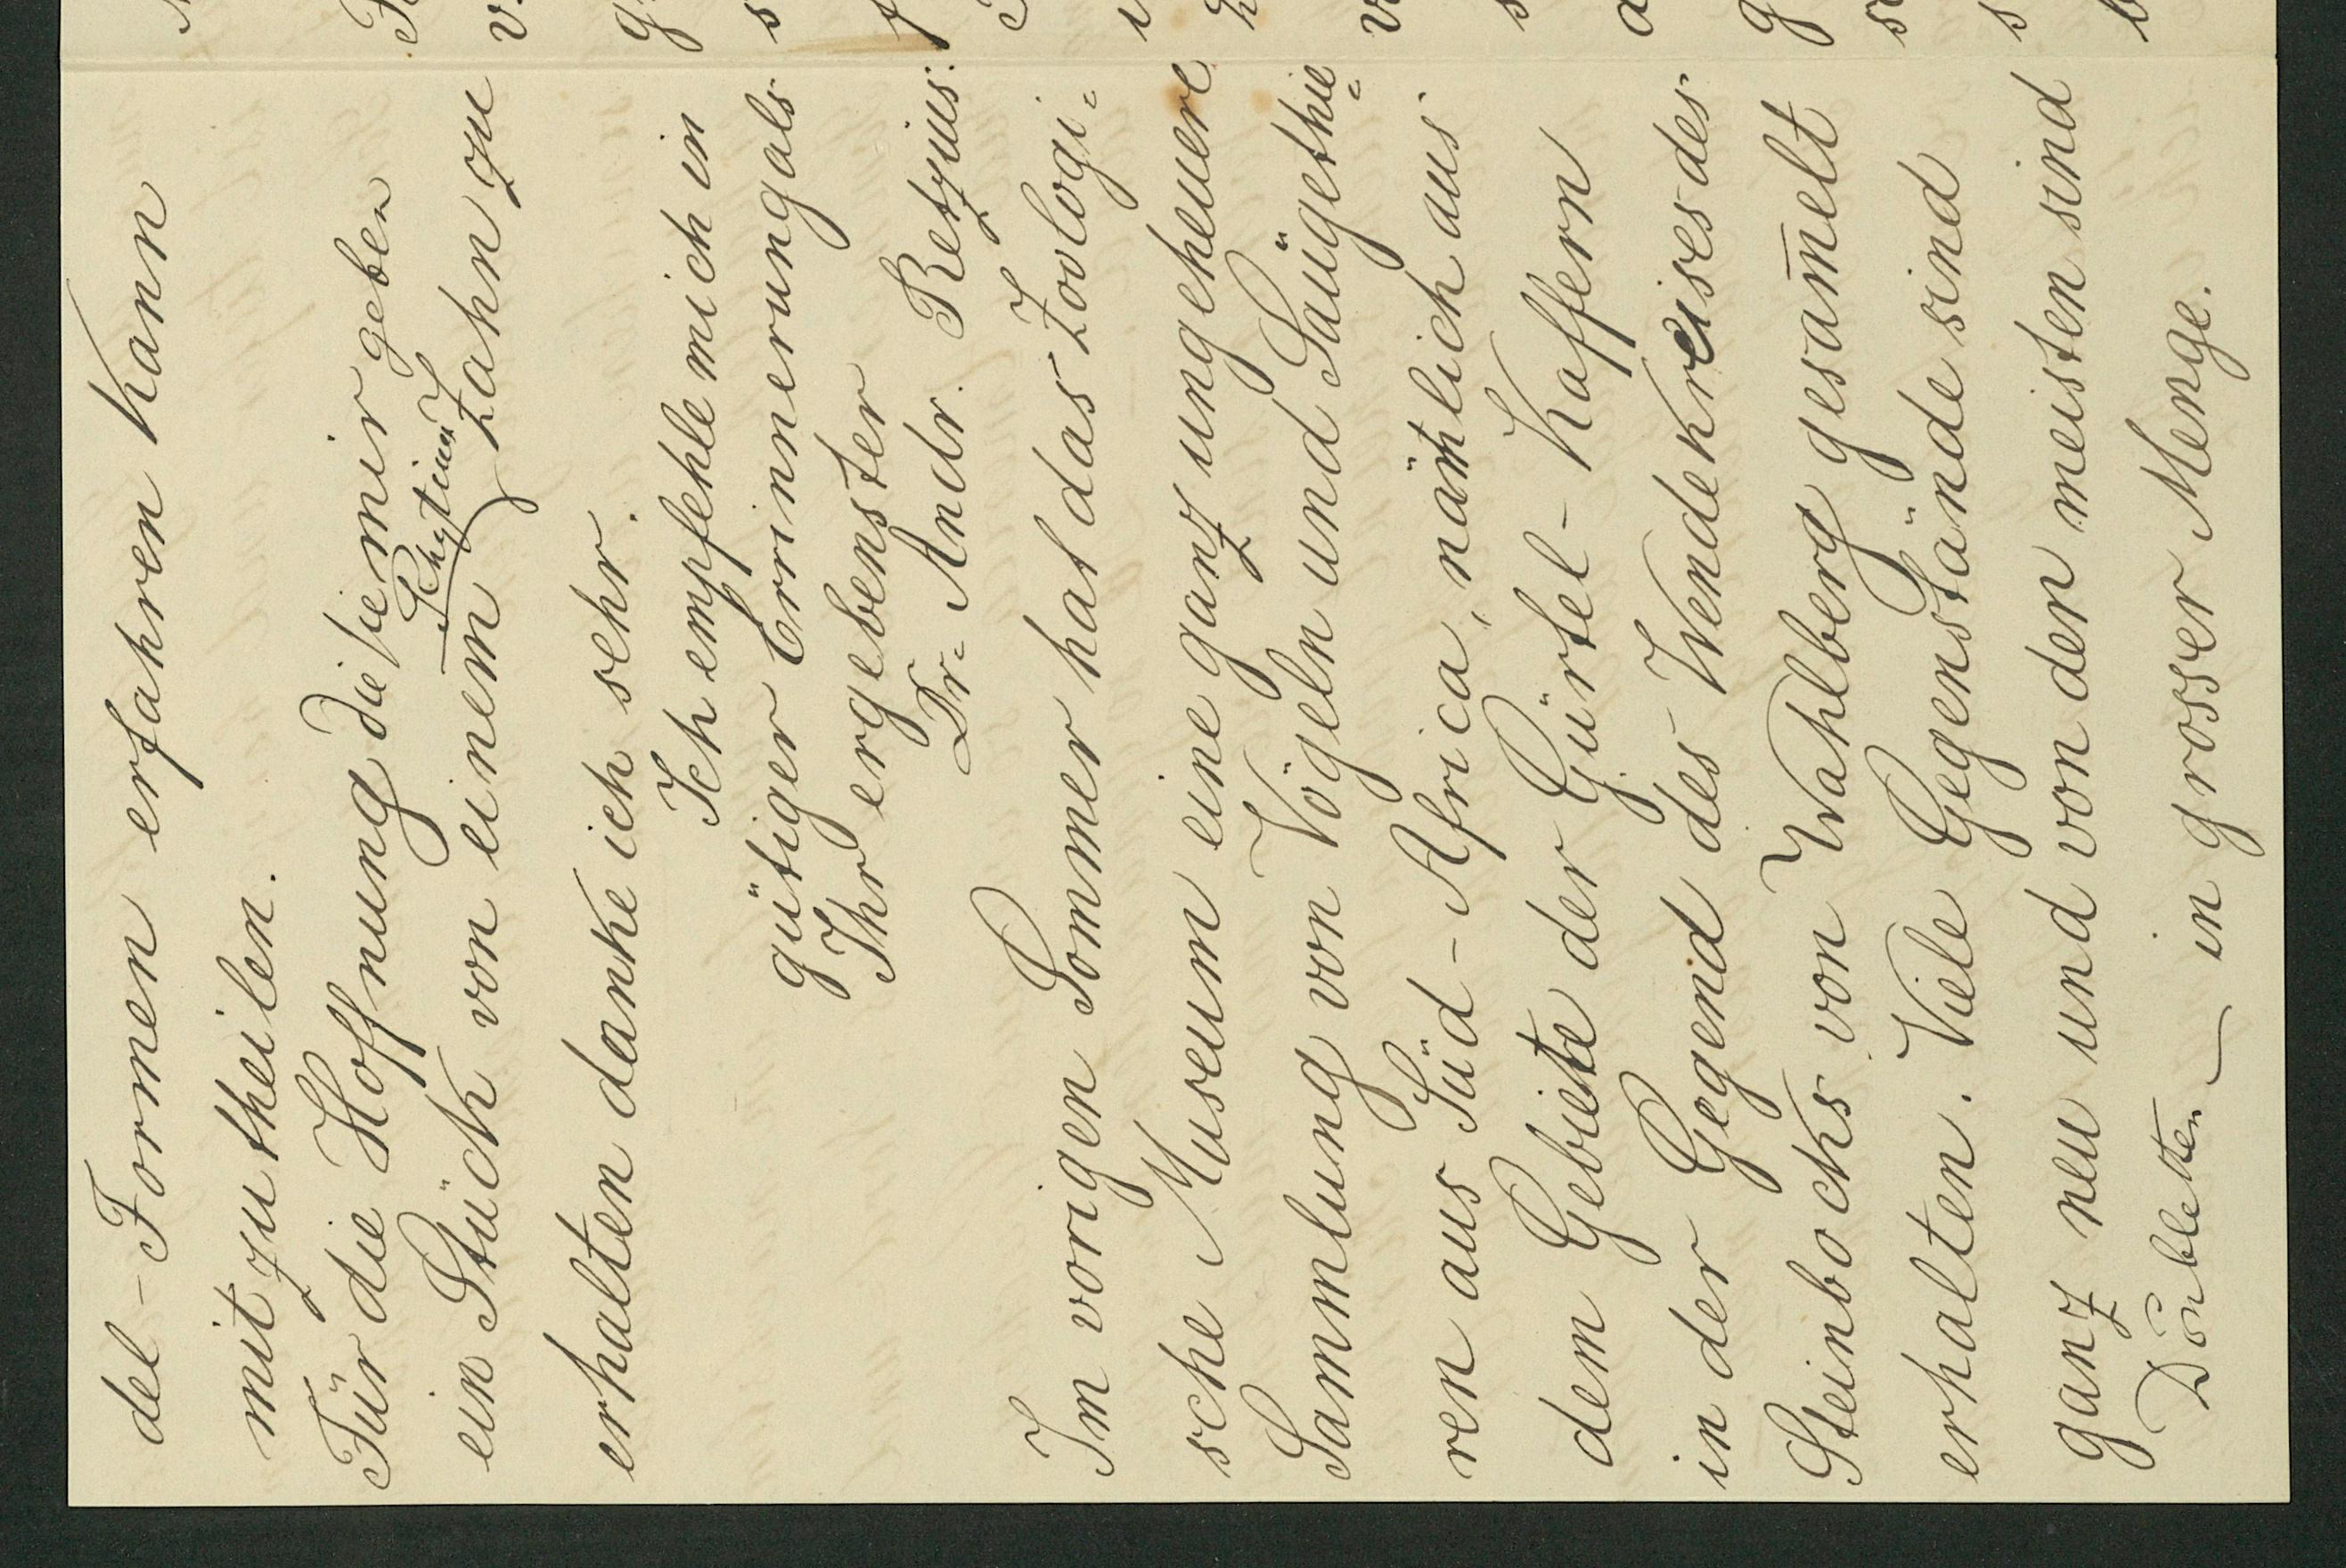 del - Formen erfahren kann
mitzutheilen.
Für die Hoffnung die sie mir geben
ein Stück von einem Rhytina Zahn zu
erhalten danke ich sehr.
Ich empfehle mich in
gütiger Erinnerung als
Ihr ergebenster
Dr= Andr. Retzius.
Im vorigen Sommer hat das Zoologi=
sche Museum eine ganz ungeheuere
Sammlung von Vögeln und Säügethie=
ren aus Süd-Africa, nämlich aus
dem Gebiete der Gürtel-Kaffern
in der Gegend des Wendekreises des
Steinbocks von Wahlberg gesam̅elt
erhalten. Viele Gegenstände sind
ganz neu und von den meisten sind
Dou̅bletten — in grosser Menge.